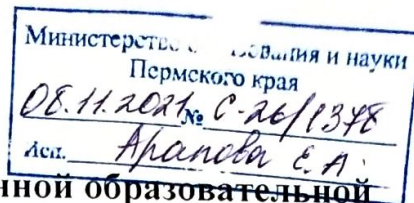 Министерство и науки
Пермского края
08.11.2021 № С-26/1378
Исп. Арапова Е.А.
нной образовательной